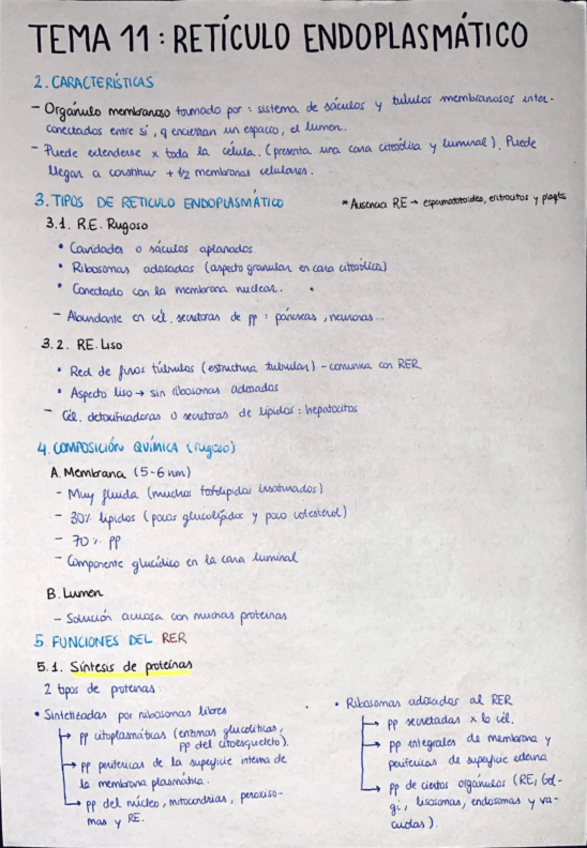 TEMA 11: RETÍCULO ENDOPLASMÁTICO
2. CARACTERÍSTICAS
- Orgánulo membranoso formado por: sistema de sáculos y túbulos membranosos inter-
conectados entre sí, q encierran un espacio, el lumen.
- Puede extenderse x toda la célula. (presenta una cara citosólica y luminal). Puede
llegar a constituir + 1/2 membranas celulares.
3. TIPOS DE RETICULO ENDOPLASMÁTICO
* Ausencia RE → espermatozoides, eritrocitos y plaqts
3.1. R.E. Rugoso
• Cavidades o sáculos aplanados
• Ribosomas adosados (aspecto granular en cara citosólica)
• Conectado con la membrana nuclear.
- Abundante en cél. secretoras de pp: páncreas, neuronas...
3.2. RE. Liso
• Red de finos túbulos (estructura tubular) - comunica con RER.
• Aspecto liso → sin ribosomas adosados
- Cél. detoxificadoras o secretoras de lípidos: hepatocitos
4. COMPOSICIÓN QUÍMICA (rugoso)
A. Membrana (5-6 nm)
- Muy fluida (muchos fosfolípidos insaturados)
- 30% lípidos (pocos glucolípidos y poco colesterol)
- 70% PP
- Componente glucídico en la cara luminal
B. Lumen
- Solución acuosa con muchas proteínas
5 FUNCIONES DEL RER
5.1. Síntesis de proteínas
2 tipos de proteínas:
• Sintetizadas por ribosomas libres
→ pp citoplasmáticas (enzimas glucolíticas,
pp del citoesqueleto).
→ pp periféricas de la superficie interna de
la membrana plasmática.
→ pp del núcleo, mitocondrias, peroxiso-
mas y RE.
• Ribosomas adosados al RER
→ pp secretadas x la cél.
→ pp integrales de membrana y
periféricas de superficie externa
→ pp de ciertos orgánulos (RE, Gol-
gi, lisosomas, endosomas y va-
cuolas).